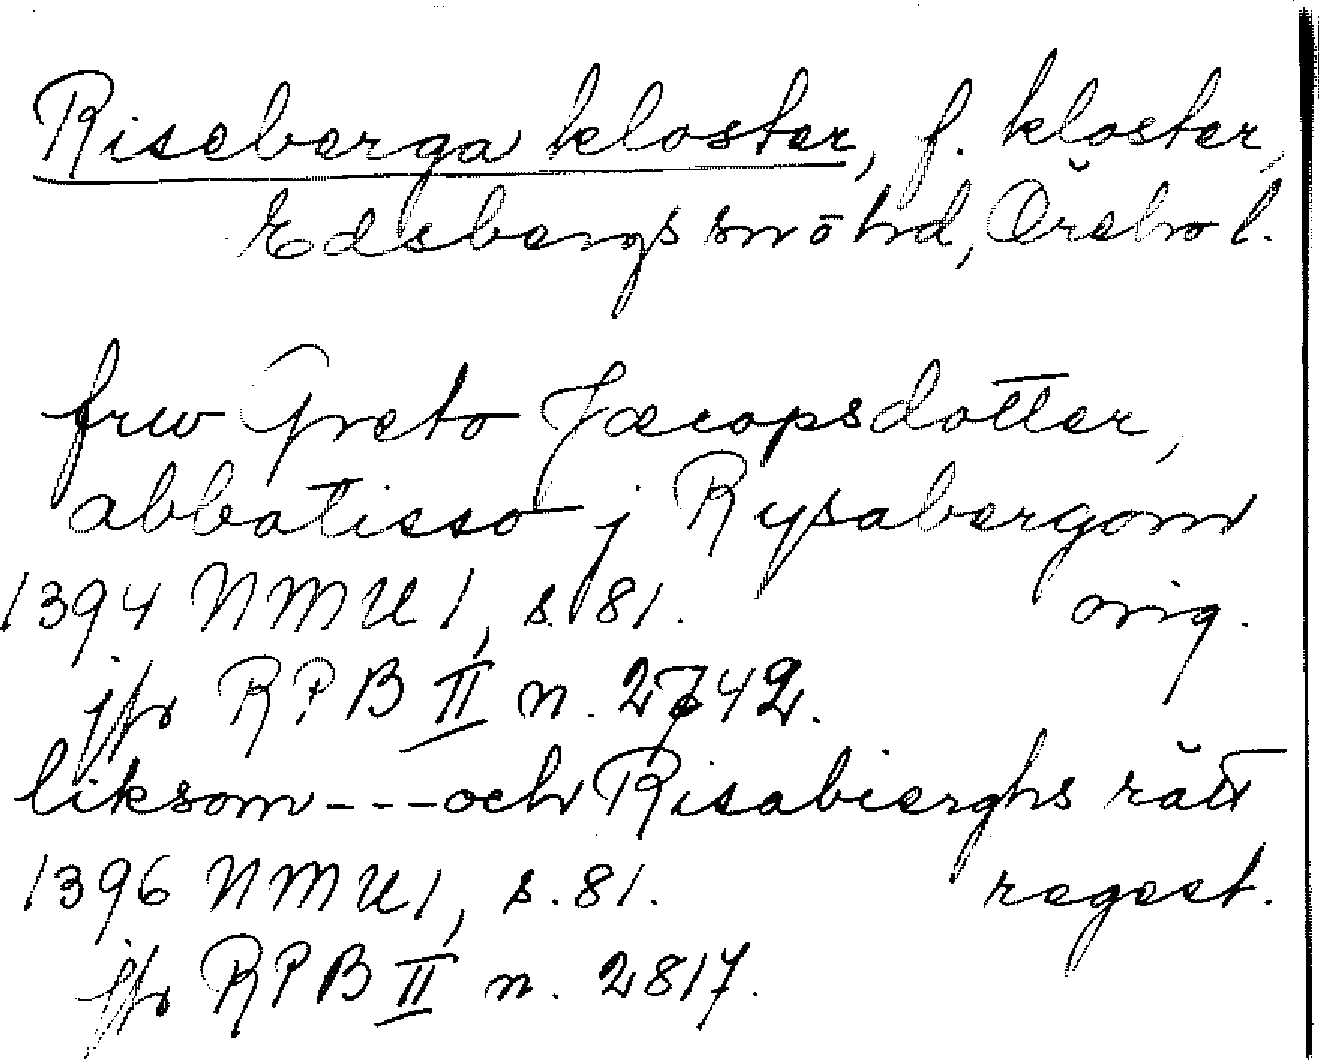 Riseberga kloster, f. kloster,
Edsbergs sn o hd, Örebro l.
frw Greto Jæcopsdotter,
abbatisso j Rysabergom
1394 NMU 1, s. 81. orig.
jfr RPB II n. 2742.
liksom---och Risabierghs rätt
1396 NMU 1, s. 81. regest.
jfr RPB II n. 2817.